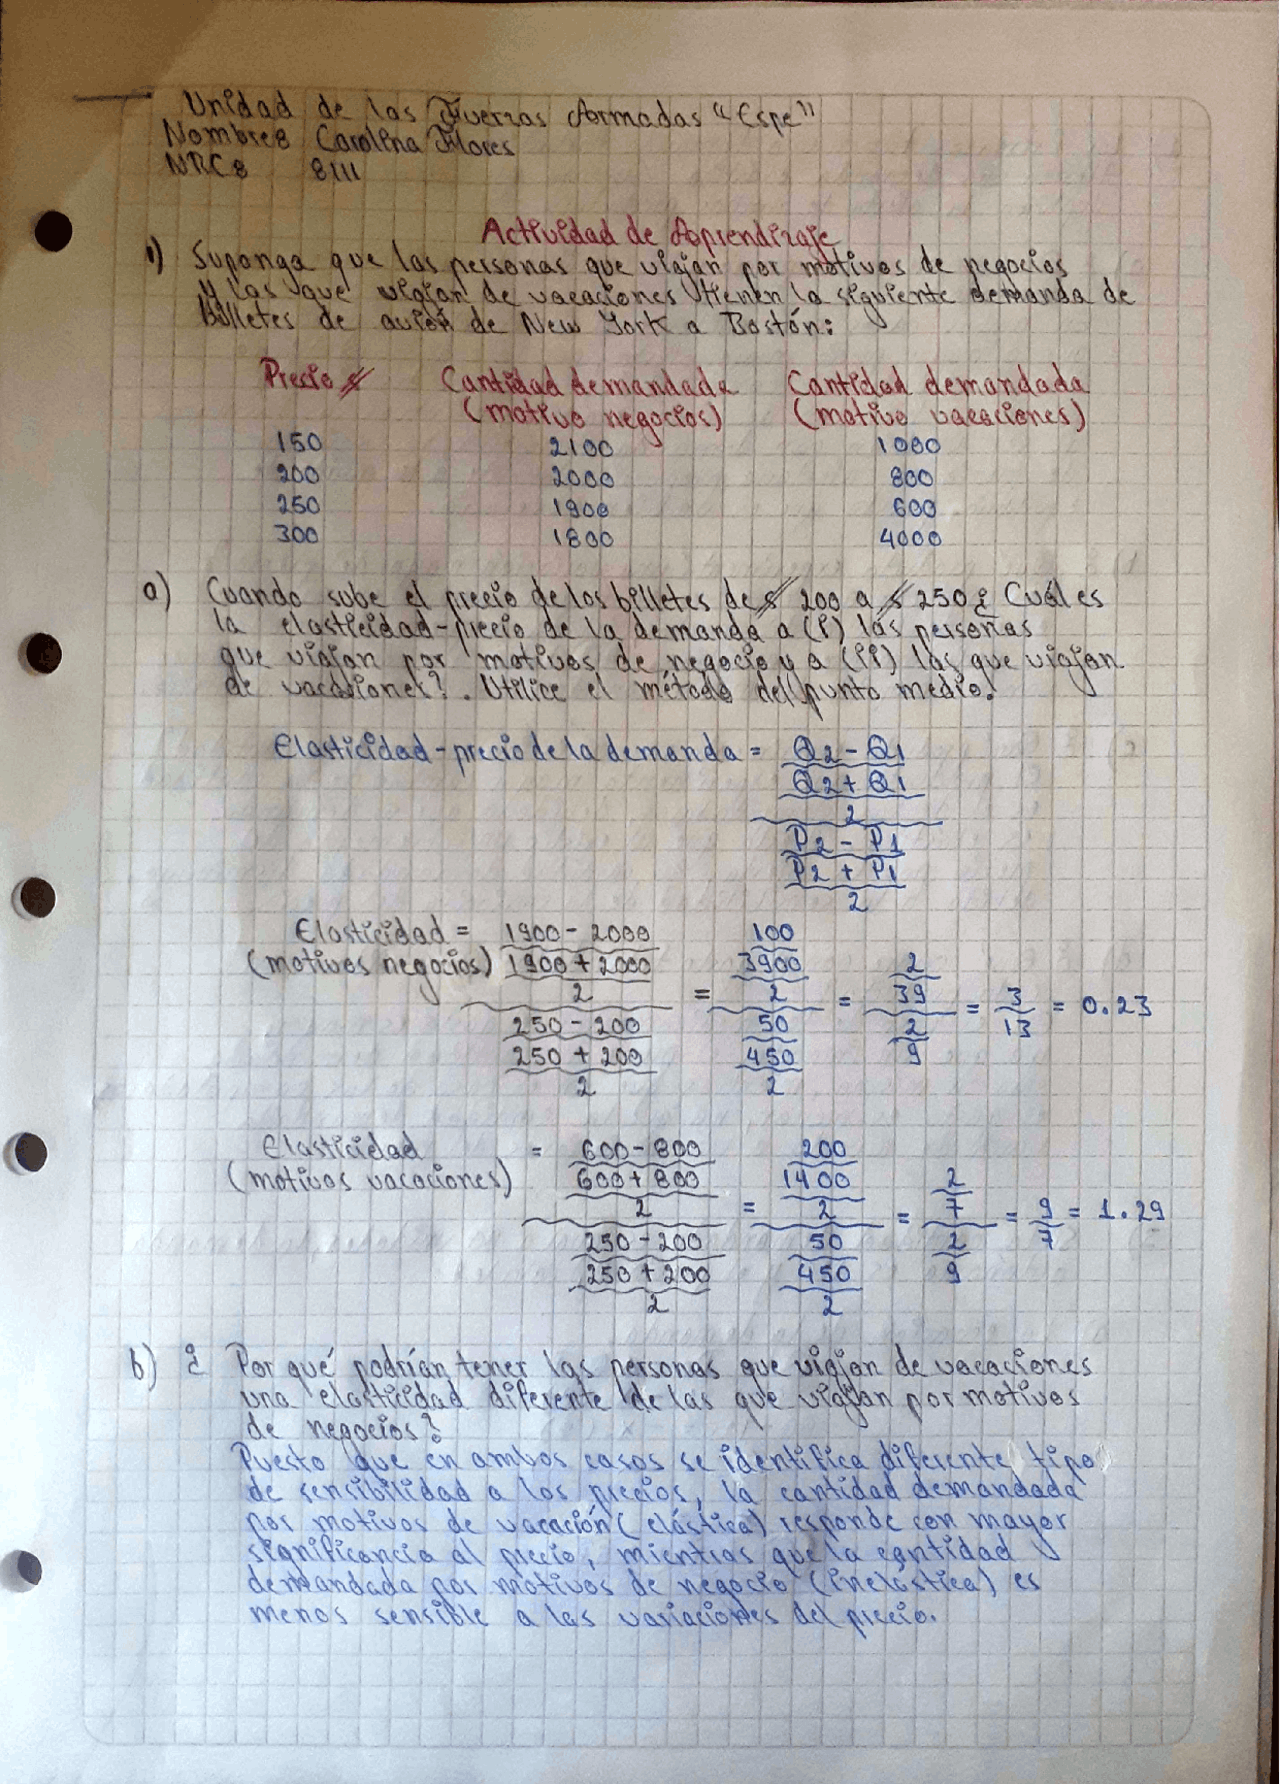 Unidad de las Fuerzas Armadas "Espe"
Nombre: Carolina Flores
NRC: 8111
Actividad de Aprendizaje
1) Suponga que las personas que viajan por motivos de negocios
y las que viajan de vacaciones tienen la siguiente demanda de
Billetes de avión de New York a Bostón:
Precio $ Cantidad demandada Cantidad demandada
(motivo negocios) (motivo vacaciones)
150 2100 1000
200 2000 800
250 1900 600
300 1800 4000
a) Cuando sube el precio de los billetes de $ 200 a $ 250 ¿ Cuál es
la elasticidad-precio de la demanda a (i) las personas
que viajan por motivos de negocio y a (ii) las que viajan
de vacaciones?. Utilice el método del punto medio.
Elasticidad-precio de la demanda = Q2 - Q1
Q2 + Q1
2
P2 - P1
P2 + P1
2
Elasticidad = 1900 - 2000 100
(motivos negocios) 1900 + 2000 3900 2
2 = 2 = 39 = 3 = 0.23
250 - 200 50 2 13
250 + 200 450 9
2 2
Elasticidad = 600 - 800 200
(motivos vacaciones) 600 + 800 1400 2
2 = 2 = 7 = 9 = 1.29
250 - 200 50 2 7
250 + 200 450 9
2 2
b) ¿ Por qué podrían tener las personas que viajan de vacaciones
una elasticidad diferente de las que viajan por motivos
de negocios?
Puesto que en ambos casos se identifica diferente tipo
de sensibilidad a los precios, la cantidad demandada
por motivos de vacación (elástica) responde con mayor
significancia al precio, mientras que la cantidad
demandada por motivos de negocio (inelástica) es
menos sensible a las variaciones del precio.